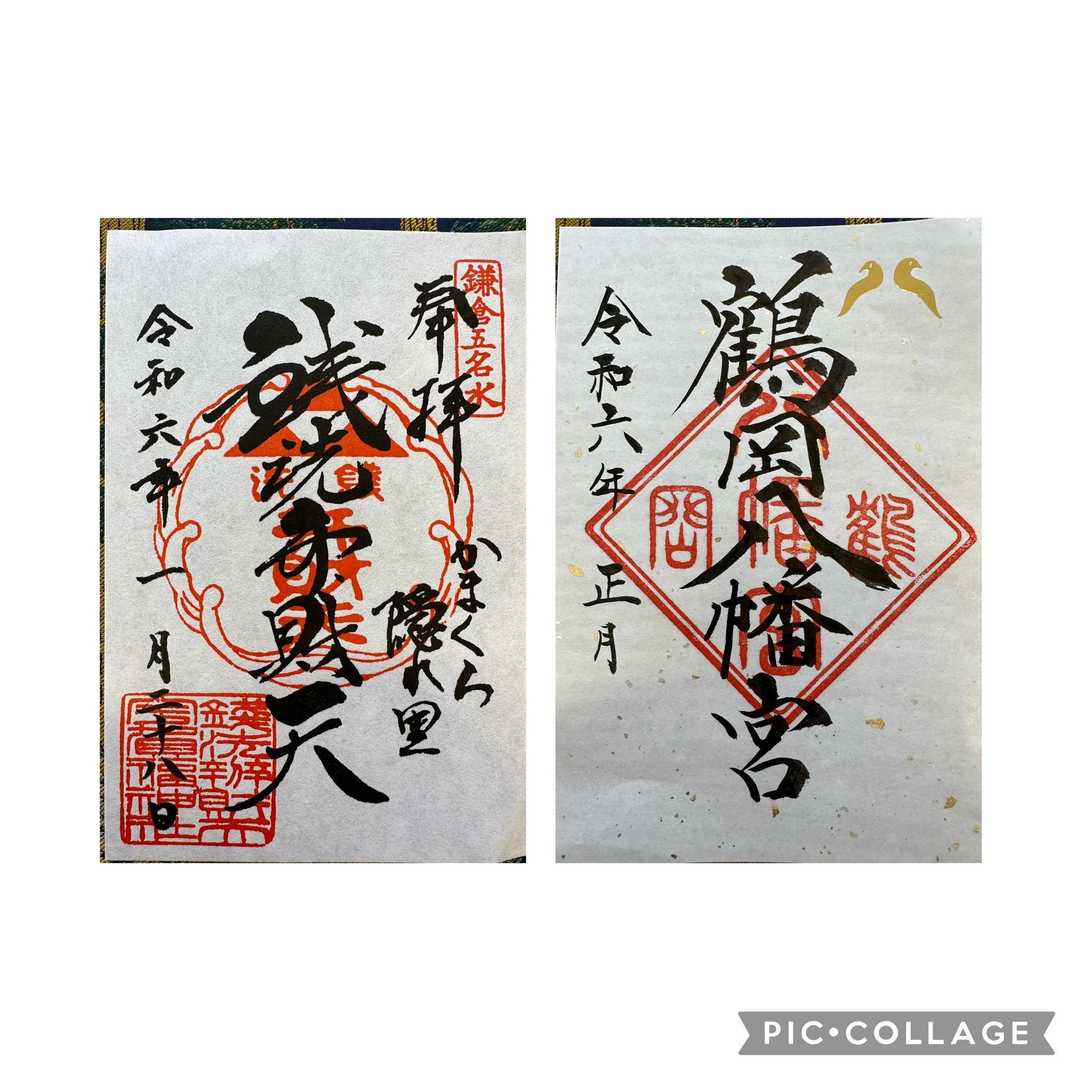 鎌倉五名水
奉拝
かまくら
隠れ里
銭洗弁財天
令和六年一月二十八日
鶴岡八幡宮
令和六年正月
PIC•COLLAGE